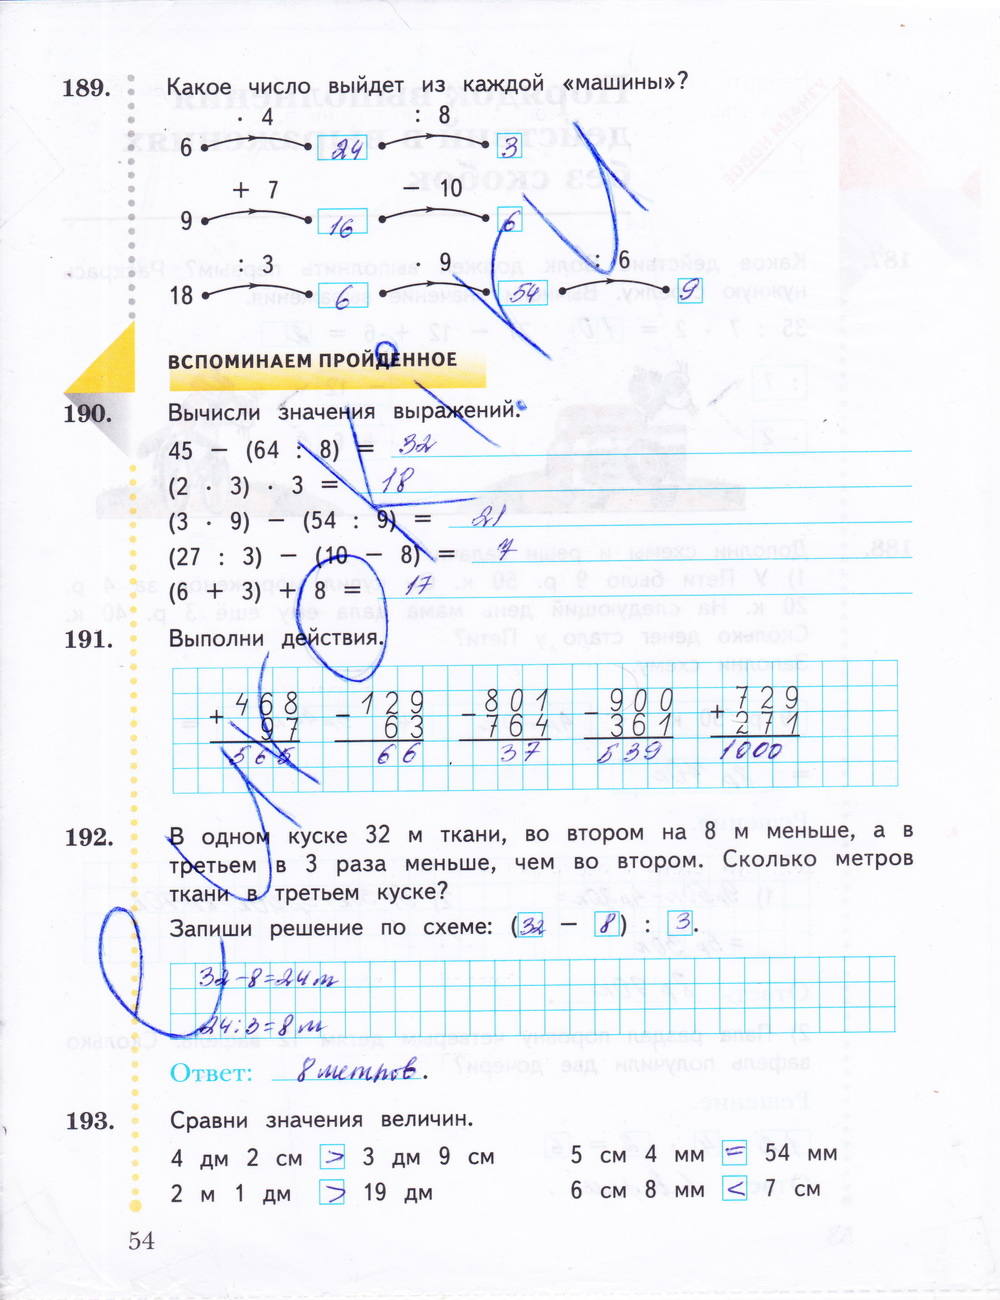 189. Какое число выйдет из каждой «машины»?
· 4 : 8
6 24 3
+ 7 − 10
9 16 6
: 3 · 9 : 6
18 6 54 9
ВСПОМИНАЕМ ПРОЙДЕННОЕ
190. Вычисли значения выражений.
45 − (64 : 8) = 32
(2 · 3) · 3 = 18
(3 · 9) − (54 : 9) = 21
(27 : 3) − (10 − 8) = 7
(6 + 3) + 8 = 17
191. Выполни действия.
+ 468 − 129 − 801 − 900 + 729
97 63 764 361 271
565 66 37 539 1000
192. В одном куске 32 м ткани, во втором на 8 м меньше, а в
третьем в 3 раза меньше, чем во втором. Сколько метров
ткани в третьем куске?
Запиши решение по схеме: (32 − 8) : 3.
32-8=24м
24:3=8м
Ответ: 8 метров.
193. Сравни значения величин.
4 дм 2 см > 3 дм 9 см 5 см 4 мм = 54 мм
2 м 1 дм > 19 дм 6 см 8 мм < 7 см
54